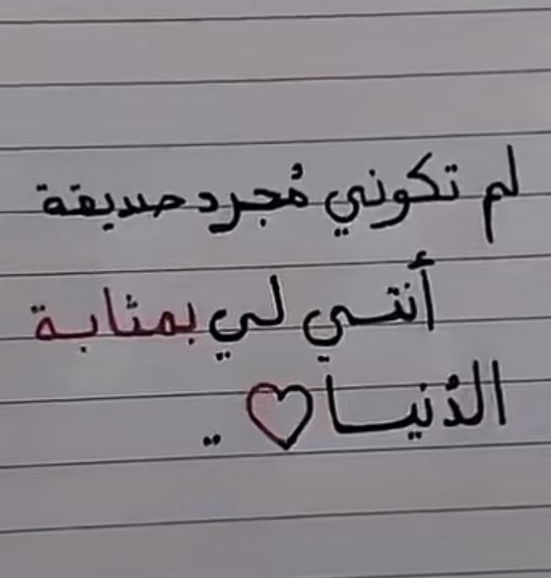 لم تكوني مُجرد صديقة
أنتي لي بمثابة
الدُنيــا♡ ..